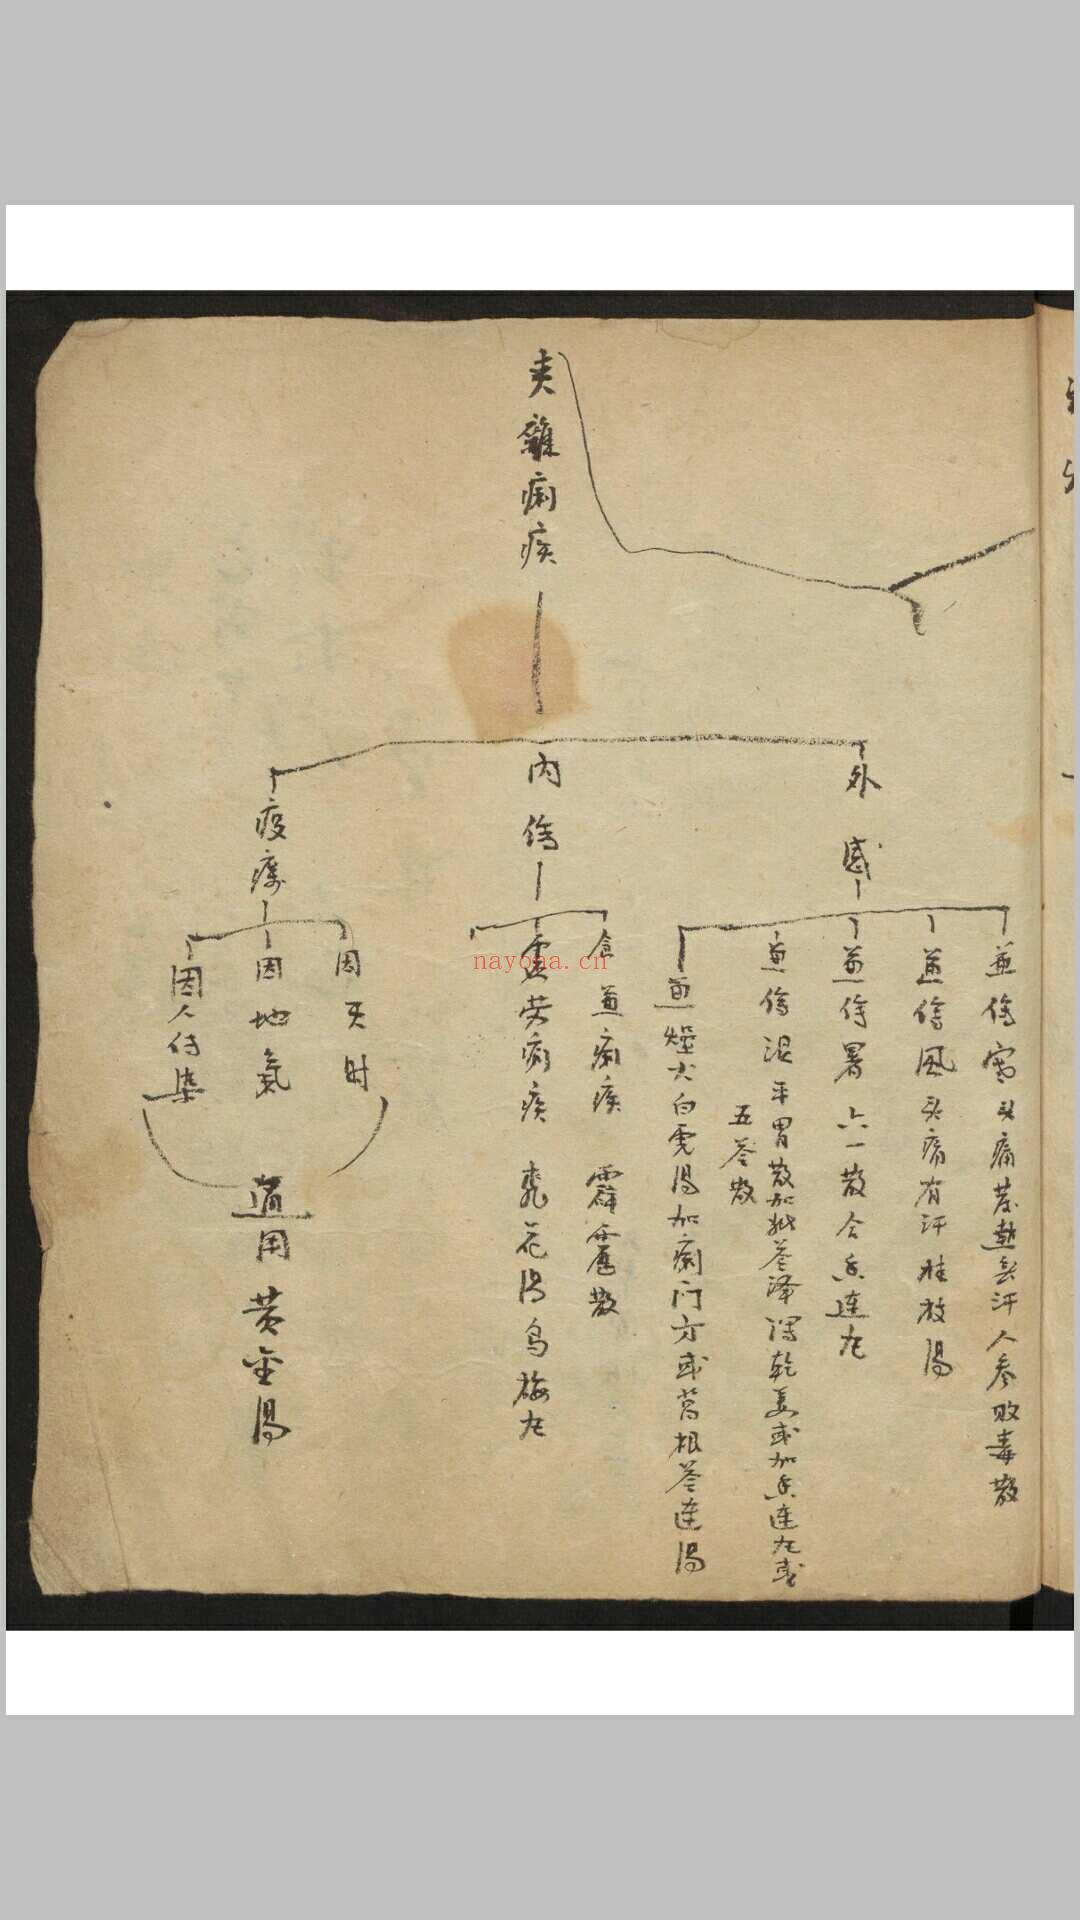 夾雜痢疾
外感
兼傷寒头痛发热無汗人參败毒散
兼傷風头痛有汗桂枝湯
兼傷暑六一散合香連丸
兼傷濕平胃散加 苓澤 乾姜或加香連丸或
五苓散
兼燥火白虎湯加痢门方或葛根苓連湯
内傷
食兼痢疾 霹靂散
虛劳痢疾 桃花湯烏梅丸
疫癘
因天时
因地氣
因人传染
適用黄金湯
nayona.cn